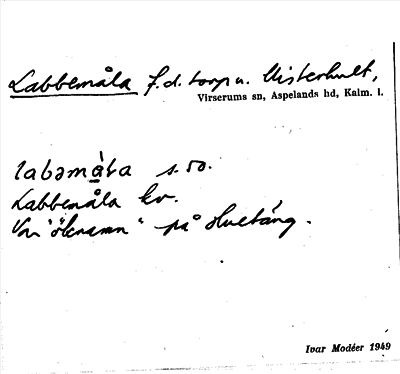 Labbemåla f.d. torp u. Misterhult,
Virserums sn, Aspelands hd, Kalm. l.
labəmà̊la s. 50.
Labbemåla kv.
Var "öknamn" på Hultäng.
Ivar Modéer 1949